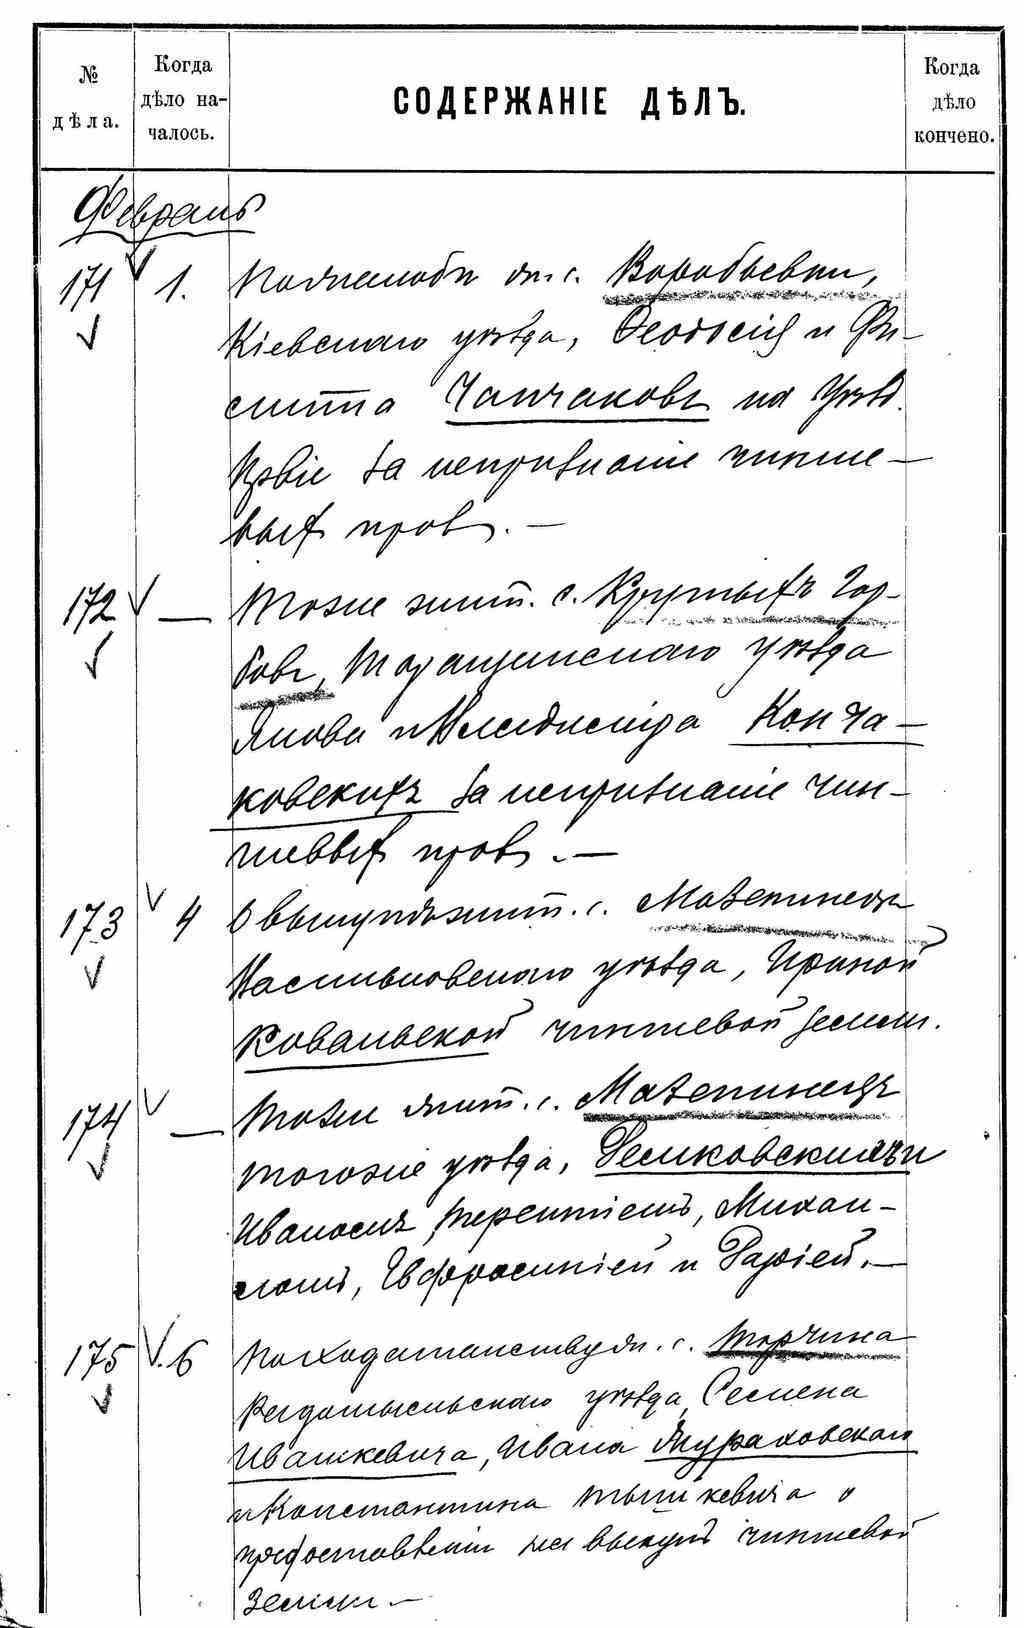 № дѣла.
Когда дѣло началось.
СОДЕРЖАНІЕ ДѢЛЪ.
Когда дѣло кончено.
Февраль
171 1. По жалобѣ жит. с. Воробьевки,
Кіевскаго уѣзда, Феодосія и
Чапчаковъ на Уѣзд.
за непризнаніе чинше-
выхъ правъ. —
172 — Тоже жит. с. Крутыхъ Гор-
бовъ, Таращанскаго уѣзда
Якова и Александра Конча-
ковскихъ за непризнаніе чин-
шевыхъ правъ. —
173 4 О выкупѣ жит. с. Мазепинецъ
Васильковскаго уѣзда, Ириной
Ковальской чиншевой земли.
174 — Тоже жит. с. Мазепинецъ
тогоже уѣзда,
Иваномъ, Терентіемъ, Михаи-
ломъ, Евфросиніей и Софіей. —
175 6 По ходатайству жит. с. Торчина
Радомысльскаго уѣзда, Семена
Ивашкевича, Ивана Жураховскаго
и Константина Тышкевича о
предоставленіи на выкупъ чиншевой
земли. —